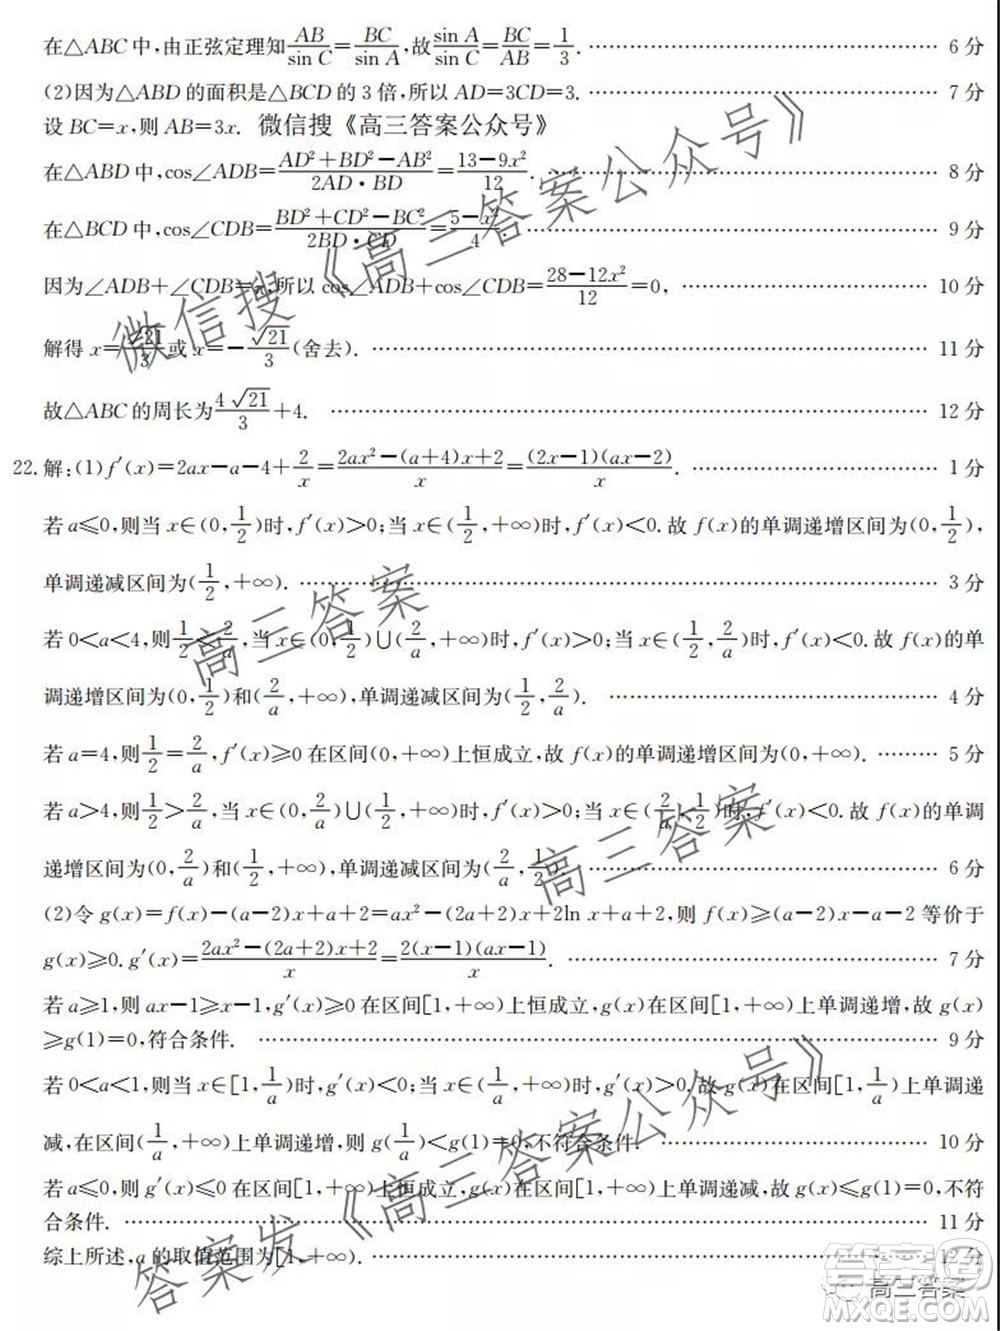 在△ABC中,由正弦定理知AB/sin C=BC/sin A,故sin A/sin C=BC/AB=1/3. …… 6分
(2)因为△ABD的面积是△BCD的3倍,所以AD=3CD=3. …… 7分
设BC=x,则AB=3x. 微信搜《高三答案公众号》
在△ABD中,cos∠ADB=(AD²+BD²-AB²)/(2AD·BD)=(13-9x²)/12. …… 8分
在△BCD中,cos∠CDB=(BD²+CD²-BC²)/(2BD·CD)=(5-x²)/4. …… 9分
因为∠ADB+∠CDB=π,所以cos∠ADB+cos∠CDB=(28-12x²)/12=0, …… 10分
解得x=√21/3或x=-√21/3(舍去). …… 11分
故△ABC的周长为4√21/3+4. …… 12分
22.解:(1)f′(x)=2ax-a-4+2/x=(2ax²-(a+4)x+2)/x=(2x-1)(ax-2)/x. …… 1分
若a≤0,则当x∈(0,1/2)时,f′(x)>0;当x∈(1/2,+∞)时,f′(x)<0.故f(x)的单调递增区间为(0,1/2),
单调递减区间为(1/2,+∞). …… 3分
若0<a<4,则1/2<2/a,当x∈(0,1/2)∪(2/a,+∞)时,f′(x)>0;当x∈(1/2,2/a)时,f′(x)<0.故f(x)的单
调递增区间为(0,1/2)和(2/a,+∞),单调递减区间为(1/2,2/a). …… 4分
若a=4,则1/2=2/a,f′(x)≥0在区间(0,+∞)上恒成立,故f(x)的单调递增区间为(0,+∞). …… 5分
若a>4,则1/2>2/a,当x∈(0,2/a)∪(1/2,+∞)时,f′(x)>0;当x∈(2/a,1/2)时,f′(x)<0.故f(x)的单调
递增区间为(0,2/a)和(1/2,+∞),单调递减区间为(2/a,1/2). …… 6分
(2)令g(x)=f(x)-(a-2)x+a+2=ax²-(2a+2)x+2ln x+a+2,则f(x)≥(a-2)x-a-2等价于
g(x)≥0.g′(x)=(2ax²-(2a+2)x+2)/x=2(x-1)(ax-1)/x. …… 7分
若a≥1,则ax-1≥x-1,g′(x)≥0在区间[1,+∞)上恒成立,g(x)在区间[1,+∞)上单调递增,故g(x)
≥g(1)=0,符合条件. …… 9分
若0<a<1,则当x∈[1,1/a)时,g′(x)<0;当x∈(1/a,+∞)时,g′(x)>0.故g(x)在区间[1,1/a)上单调递
减,在区间(1/a,+∞)上单调递增,则g(1/a)<g(1)=0,不符合条件. …… 10分
若a≤0,则g′(x)≤0在区间[1,+∞)上恒成立,g(x)在区间[1,+∞)上单调递减,故g(x)≤g(1)=0,不符
合条件. …… 11分
综上所述,a的取值范围为[1,+∞). …… 12分
微信搜《高三答案公众号》
高三答案
高三答案
答案发《高三答案公众号》
高三答案
答案圈
MXQE.COM